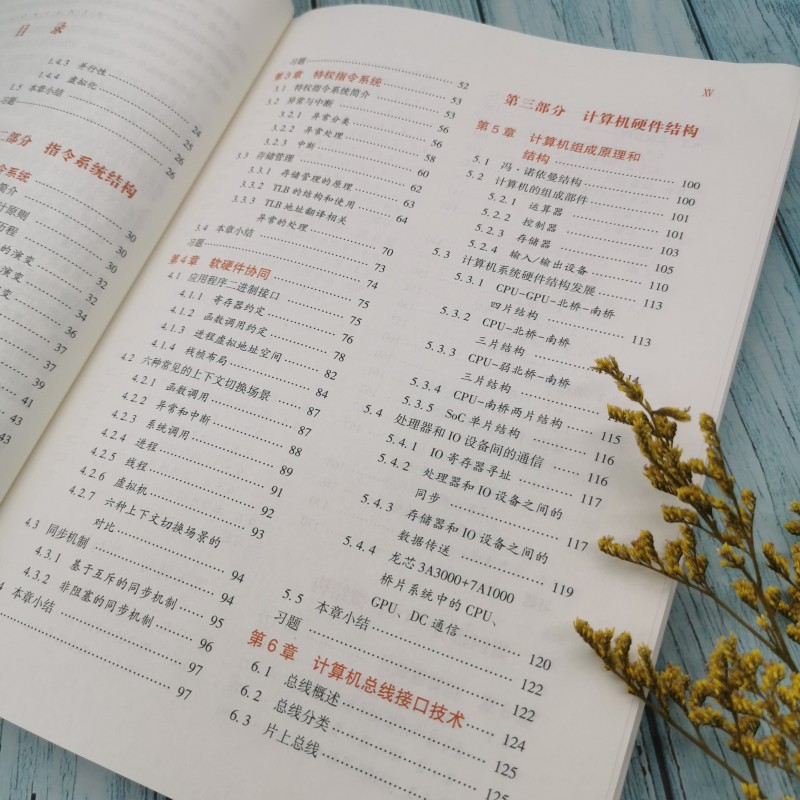 目 录
1.4.3 并行性
1.4.4 虚拟化 24
1.5 本章小结 25
习题 26
二部分 指令系统结构
令系统 30
简介 30
计原则 32
历程
的演变 32
演变 34
变 37
37
39
41
43
43
习题 52
第3章 特权指令系统 53
3.1 特权指令系统简介 53
3.2 异常与中断 56
3.2.1 异常分类 56
3.2.2 异常处理 58
3.2.3 中断 60
3.3 存储管理 62
3.3.1 存储管理的原理 63
3.3.2 TLB的结构和使用 64
3.3.3 TLB地址翻译相关
异常的处理 70
3.4 本章小结 73
习题 74
第4章 软硬件协同 75
4.1 应用程序二进制接口 75
4.1.1 寄存器约定 76
4.1.2 函数调用约定 78
4.1.3 进程虚拟地址空间 82
4.1.4 栈帧布局 84
4.2 六种常见的上下文切换场景 87
4.2.1 函数调用 87
4.2.2 异常和中断 88
4.2.3 系统调用 89
4.2.4 进程 91
4.2.5 线程 92
4.2.6 虚拟机 93
4.2.7 六种上下文切换场景的
对比 94
4.3 同步机制 94
4.3.1 基于互斥的同步机制 95
4.3.2 非阻塞的同步机制 96
4 本章小结 97
97
XV
第三部分 计算机硬件结构
第5章 计算机组成原理和
结构 100
5.1 冯·诺依曼结构 100
5.2 计算机的组成部件 101
5.2.1 运算器 101
5.2.2 控制器 103
5.2.3 存储器 105
5.2.4 输入/输出设备 110
5.3 计算机系统硬件结构发展 113
5.3.1 CPU-GPU-北桥-南桥
四片结构 113
5.3.2 CPU-北桥-南桥
三片结构 114
5.3.3 CPU-弱北桥-南桥
三片结构
5.3.4 CPU-南桥两片结构 115
5.3.5 SoC 单片结构 116
5.4 处理器和IO设备间的通信 116
5.4.1 IO寄存器寻址 117
5.4.2 处理器和IO设备之间的
同步 117
5.4.3 存储器和IO设备之间的
数据传送 119
5.4.4 龙芯3A3000+7A1000
桥片系统中的CPU、
GPU、DC通信 120
5.5 本章小结 122
习题 122
第6章 计算机总线接口技术 124
6.1 总线概述 125
6.2 总线分类 125
6.3 片上总线